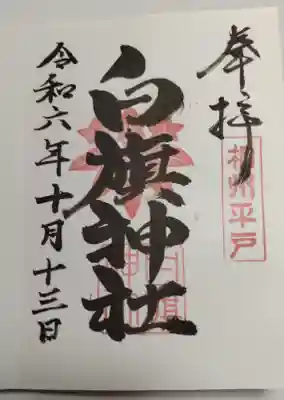 奉拝
相州平戸
白旗神社
令和六年十月十三日